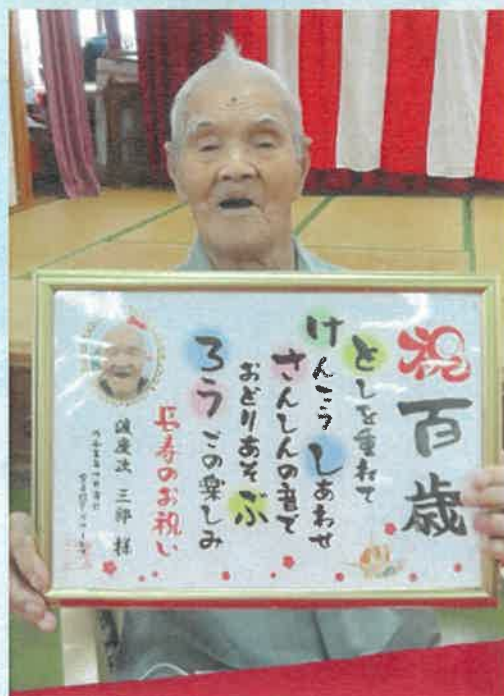 祝百歳
としを重ねて
けんこうしあわせ
さんしんの音で
おどりあそぶ
ろうごの楽しみ
長寿のお祝い
渡慶次 三郎 様